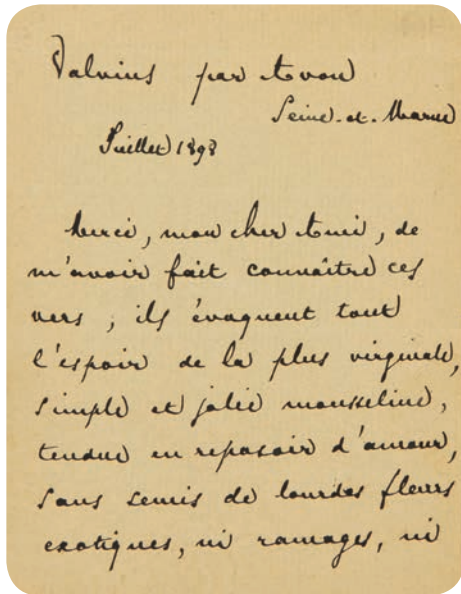 Valvins par Avon
Seine-et-Marne
Juillet 1898
Merci, mon cher Ami, de
m'avoir fait connaître ces
vers ; ils évoquent tout
l'espoir de la plus virginale,
simple et jolie mousseline,
tendue en reposoir d'amour,
sans semis de lourdes fleurs
exotiques, ni ramages, ni